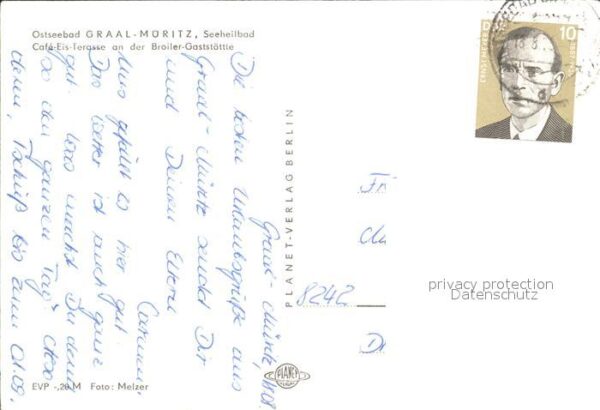 Ostseebad GRAAL-MÜRITZ, Seeheilbad
Café-Eis-Terasse an der Broiler-Gaststätte
Graal-Müritz,
Die besten Urlaubsgrüße aus
Graal-Müritz sendet Dir
und Deinen Eltern
Carmen
Uns gefällt es hier gut.
Das Wetter ist auch ganz
gut. Was machst Du denn
so den ganzen Tag?
denn, Tschüß bis zum 01.09.
PLANET-VERLAG BERLIN
ERNST MEYER
10
Fr
8242
privacy protection
Datenschutz
PLANET
VERLAG
EVP -,20 M Foto: Melzer